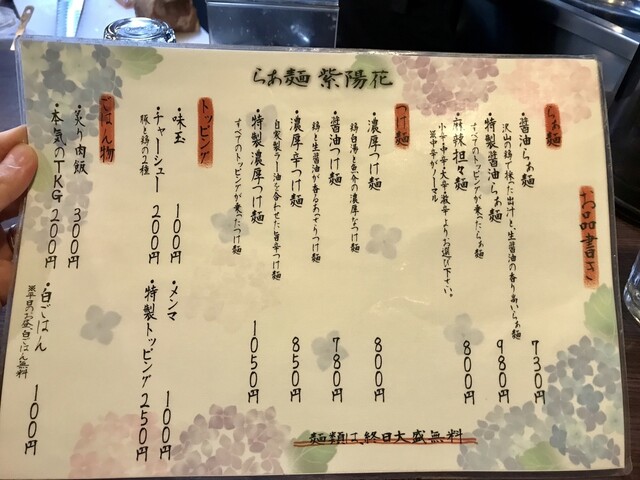 らぁ麺 紫陽花
お品書き
らぁ麺
・醤油らぁ麺 730円
沢山の鶏で採った出汁と、生醤油の香り高いらぁ麺
特製醤油らぁ麺 980円
すべてのトッピングが乗ったらぁ麺
・麻辣担々麺 800円
小辛・中辛・大辛・激辛よりお選び下さい。
※中辛がノーマル
つけ麺
・濃厚つけ麺 800円
鶏白湯と魚介の濃厚なつけ麺
・醤油つけ麺 780円
鶏と生醤油が香るあっさりつけ麺
・濃厚辛つけ麺 850円
自家製ラー油を合わせた旨辛つけ麺
・特製濃厚つけ麺 1050円
すべてのトッピングが乗ったつけ麺
トッピング
・味玉 100円
・メンマ 100円
・チャーシュー 200円
豚と鶏の2種
・特製トッピング 250円
ごはん物
・炙り肉飯 300円
・本気のTKG 200円
・白ごはん 100円
※平日のお昼、白ごはん無料
麺類は、終日大盛無料